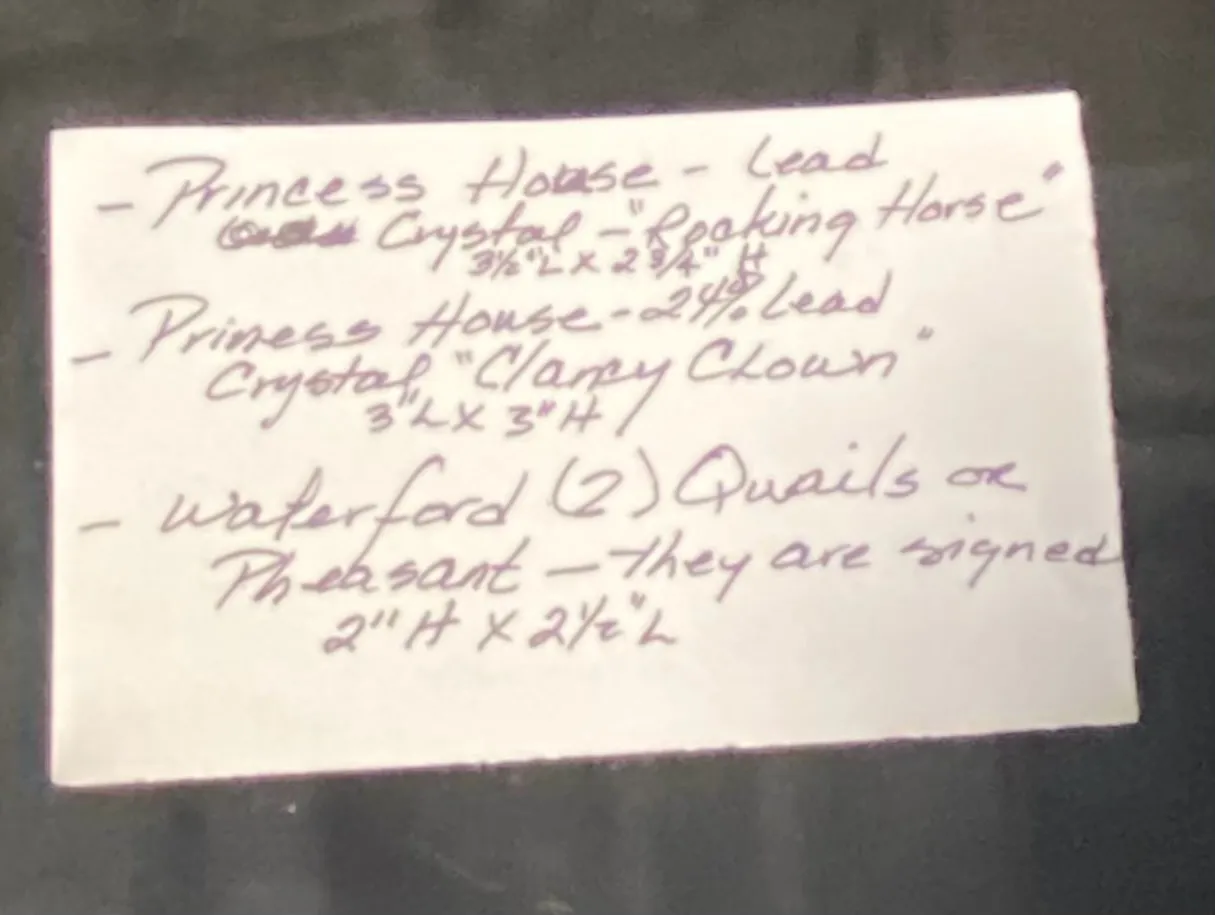 - Princess House - Lead
Crystal - "Rocking Horse"
3½"L X 2 3/4" H
- Priness House - 24% Lead
Crystal "Clancy Clown"
3"L X 3"H
- Waterford (2) Quails or
Pheasant - they are signed
2" H X 2½"L